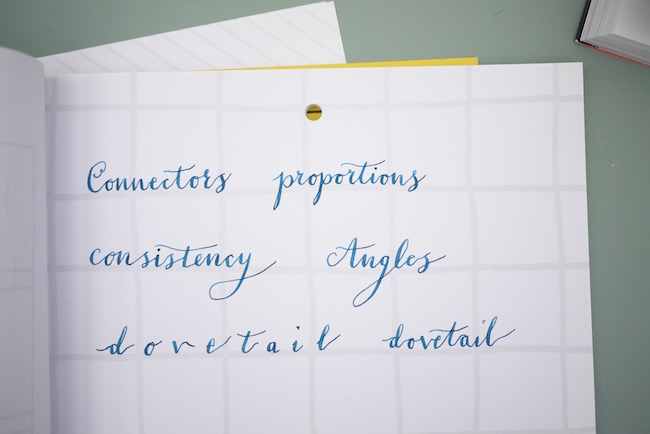 Connectors proportions
consistency Angles
dovetail dovetail